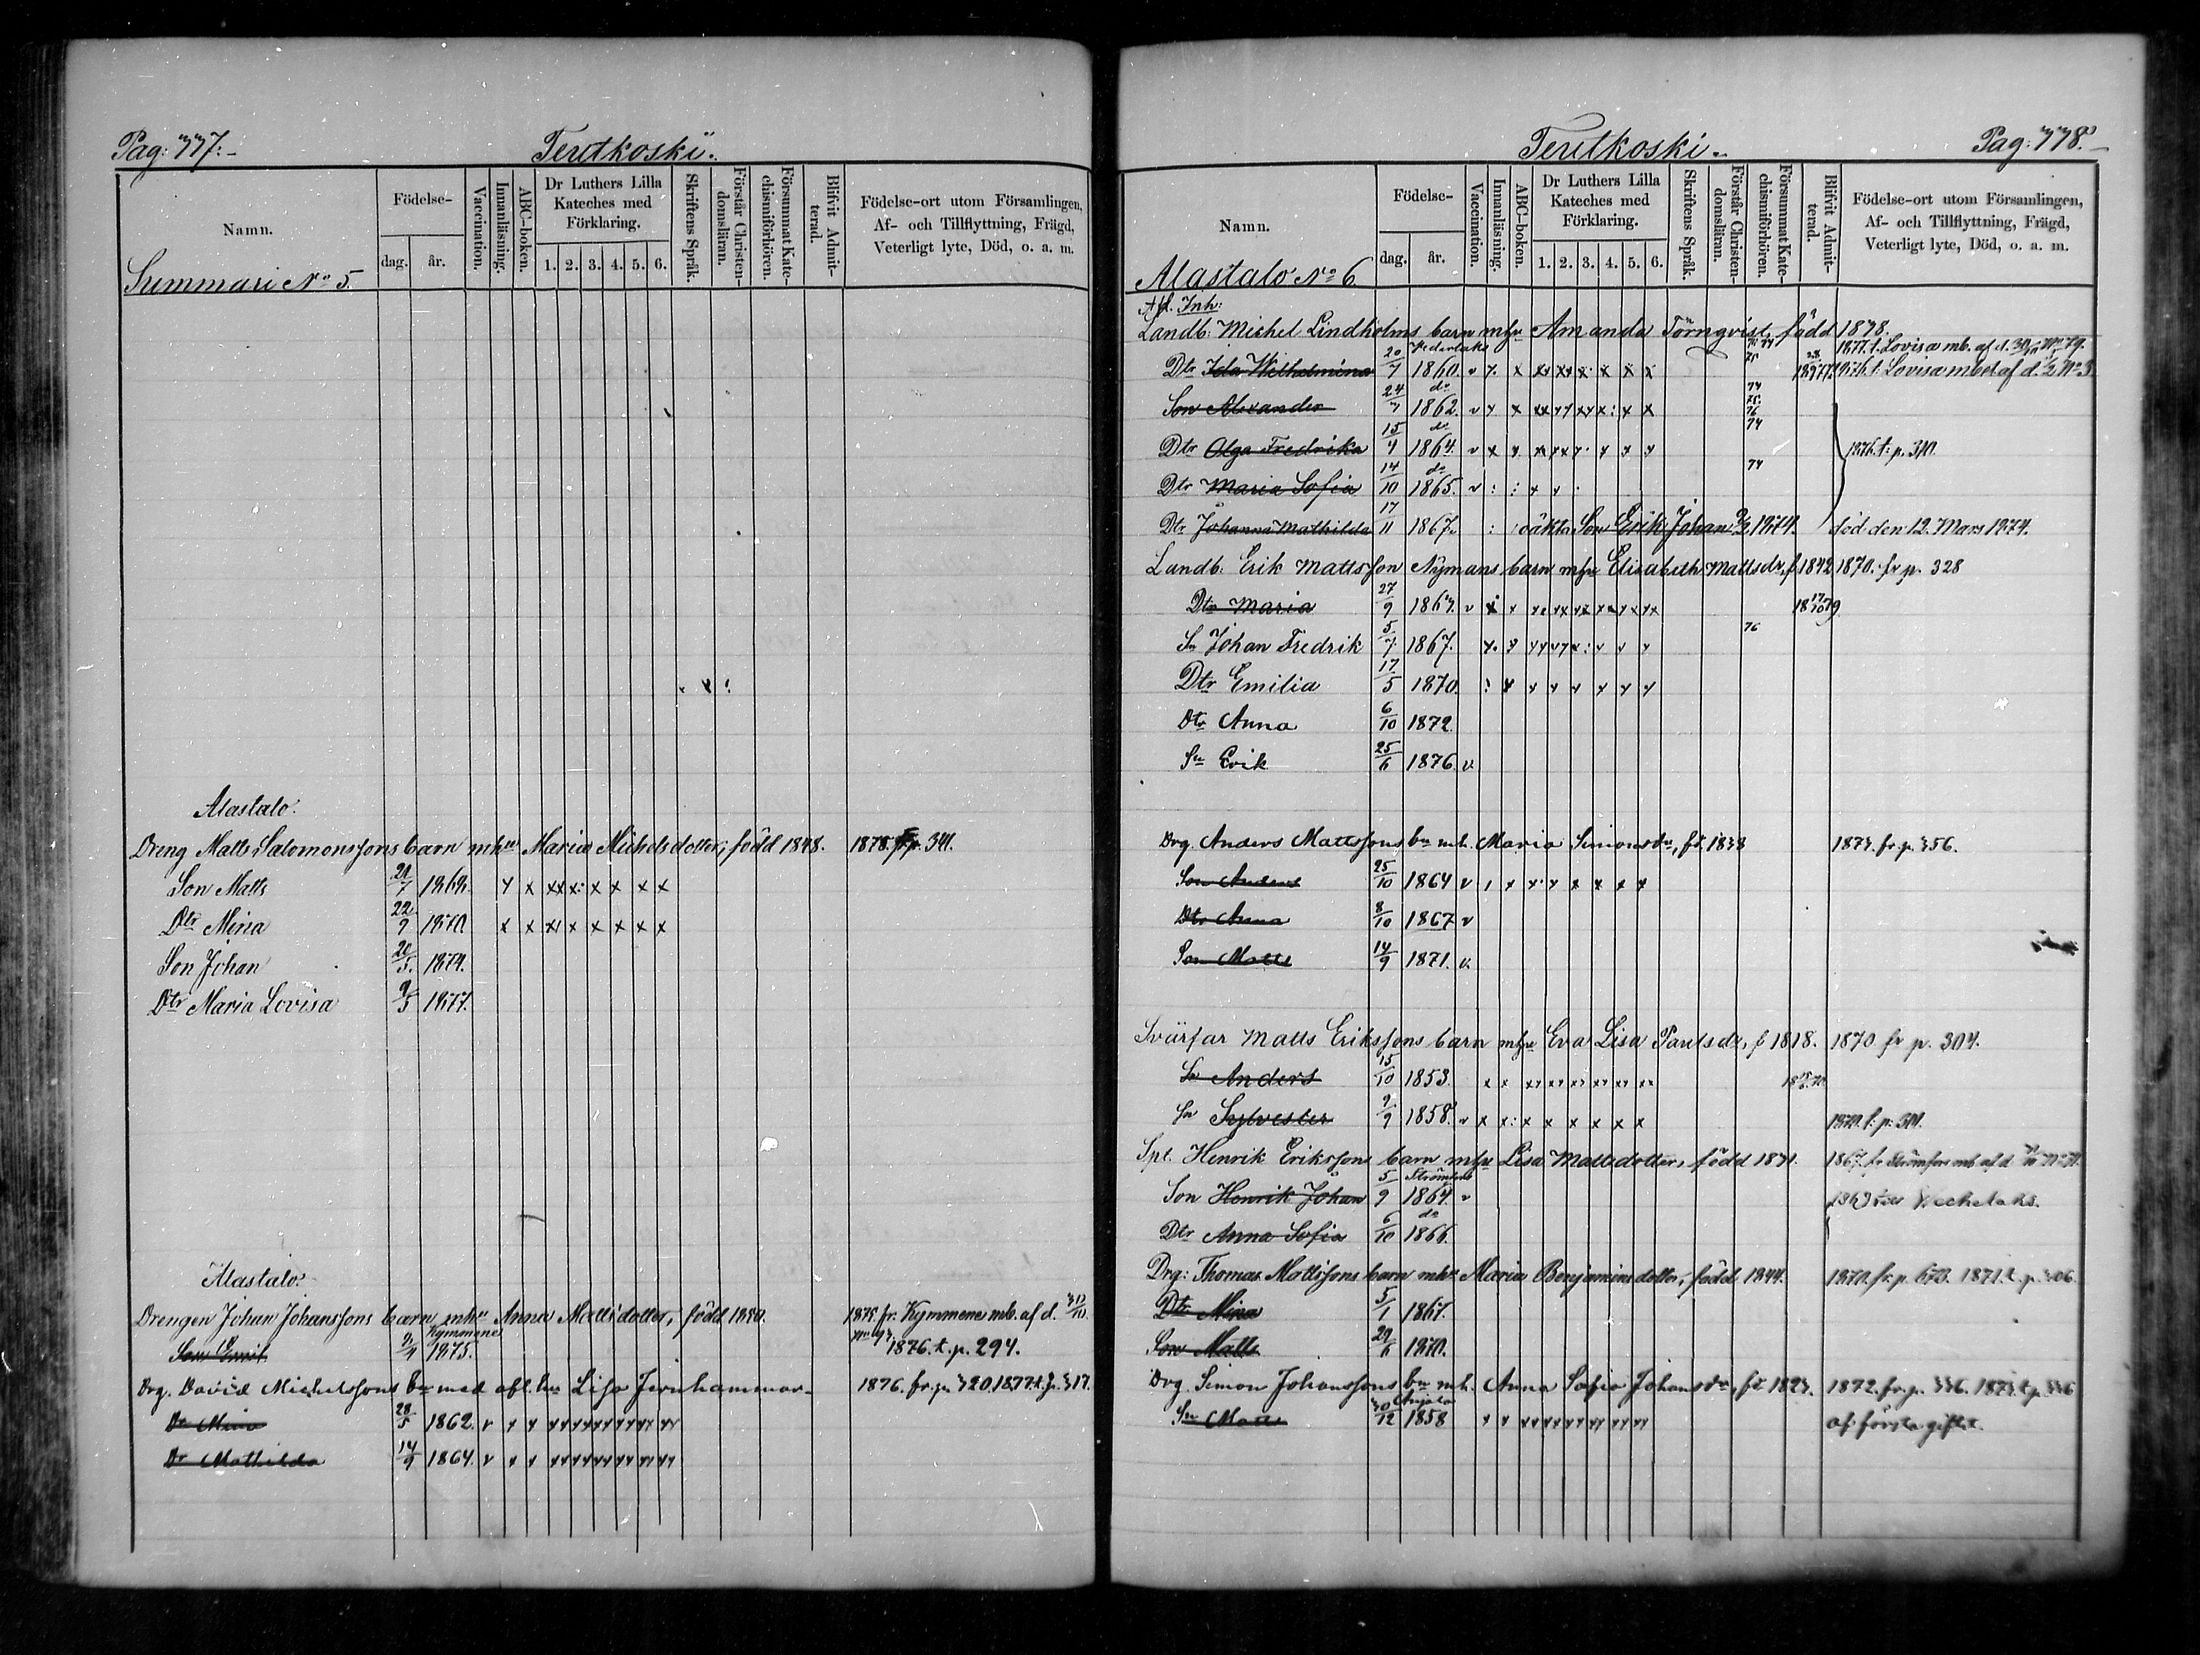 Pag: 777:-
Terttkoski.
Namn.
Födelse-
dag. år.
Vaccination.
Innanläsning.
ABC-boken.
Dr Luthers Lilla Kateches med Förklaring.
1. 2. 3. 4. 5. 6.
Skriftens Språk.
Förstår Christendomsläran.
Försummat Katechismiförhören.
Blifvit Admitterad.
Födelse-ort utom Församlingen, Af- och Tillflyttning, Frägd, Veterligt lyte, Död, o. a. m.
Summari No 5.
Alastalo:
Dreng Matts Salomonssons barn mhu Maria Michelsdotter, född 1848. 1878. fr p. 341.
Son Matts 21/7 1868.
Dtr Mina 22/9 1870
Son Johan 20/5. 1874.
Dtr Maria Lovisa 9/5 1877.
Alastalo:
Drengen Johan Johanssons barn mhu Anna Mattsdotter, född 1850. 1875. fr. Kymmene mb. af d.
Kymmene
Son Emil 1875. 1876. t. p. 294.
Drg. David Michelssons bn med afl. hu Lisa Jernhammar. 1876. fr. p. 320. 1877. t. p. 317.
Dr Mina 28/5 1862. v
Dr Mathilda 14/9 1864. v
Terttkoski.
Pag: 778.
Namn.
Födelse-
dag. år.
Vaccination.
Innanläsning.
ABC-boken.
Dr Luthers Lilla Kateches med Förklaring.
1. 2. 3. 4. 5. 6.
Skriftens Språk.
Förstår Christendomsläran.
Försummat Katechismiförhören.
Blifvit Admitterad.
Födelse-ort utom Församlingen, Af- och Tillflyttning, Frägd, Veterligt lyte, Död, o. a. m.
Alastalo No 6
Afl. Inh:
Landb: Michel Lindholms barn mhu Amanda Törnqvist, född 1878.
1877. t. Lovisa mb. af d. No 79.
Dtr Ida Wilhelmina 20/7 1860. v 75 t. Lovisa mbet af d. No 3.
Son Alexander 24/7 do 1862. v 74 75. 76
Dtr Olga Fredrika 15/4 do 1864. v 74 1876. t: p. 310.
Dtr Maria Sofia 14/10 do 1865. v 74
Dtr Johanna Mathilda 17/11 1867. oäkta Son Erik Johan 1874. död den 12. Mars 1874.
Landb. Erik Mattsson Nymans barn mhu Elisabeth Mattsdr, f. 1842 1870. fr p. 328
Dtr Maria 27/9 1867. v 18 17/10 79.
Sn Johan Fredrik 5/7 1867. 76
Dtr Emilia 17/5 1870.
Dtr Anna 6/10 1872.
Sn Erik 25/6 1876. v.
Drg. Anders Mattssons bn mh. Maria Simonsdr, fd. 1838 1873. fr. p. 356.
Son Anders 25/10 1864 v
Dtr Anna 8/10 1867 v
Son Matts 14/9 1871. v.
Svärfar Matts Erikssons barn mhu Eva Lisa Paulsdr, f 1818. 1870 fr p. 304.
Sn Anders 15/10 1853.
Sn Sylvester 9/9 1858. v 1870. t. p. 301.
Spl. Henrik Erikssons barn mhu Lisa Mattsdotter, född 1831. 1867. fr. Strömfors mb. af d.
Son Henrik Johan 5/9 Strömfors 1864. v 1869 Weckelaks.
Dtr Anna Sofia 6/10 do 1866.
Drg: Thomas Mattssons barn mhu Maria Benjaminsdotter, född 1844. 1870. fr. p. 1871. t. p. 306.
Dtr Mina 5/1 1867.
Son Matts 29/6 1870.
Drg. Simon Johanssons bn mh. Anna Sofia Johansdr, fd. 1823. 1872. fr. p. 336. 1873. t. p. 336
Sn Matts 30/12 Anjala 1858 af första giftet.